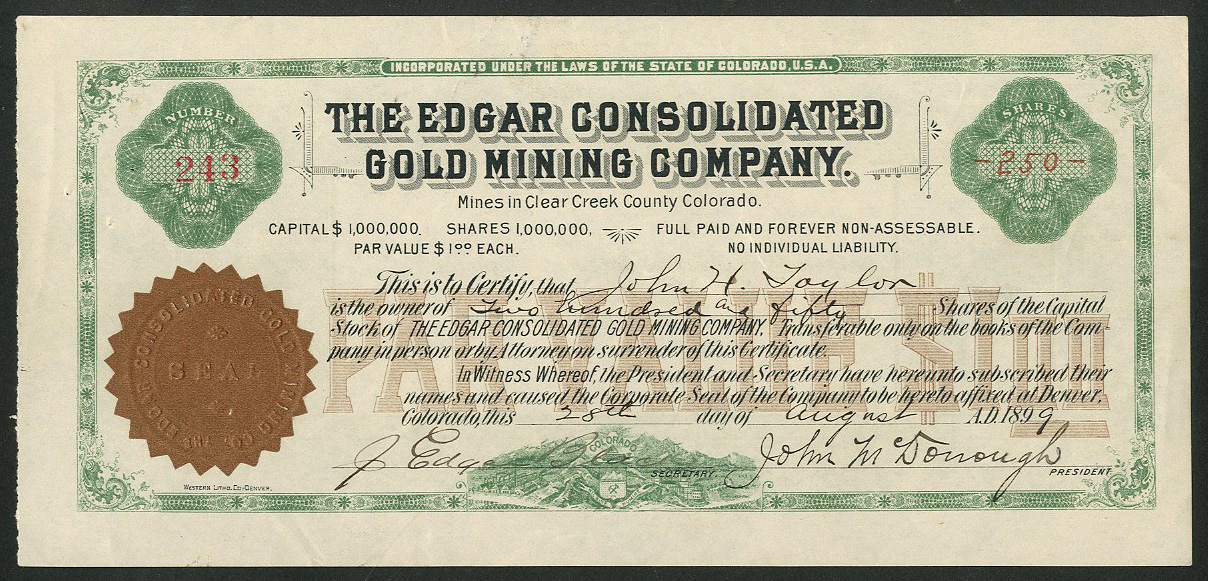 INCORPORATED UNDER THE LAWS OF THE STATE OF COLORADO, U.S.A.
NUMBER
243
THE EDGAR CONSOLIDATED
GOLD MINING COMPANY.
SHARES
-250-
Mines in Clear Creek County Colorado.
CAPITAL $ 1,000,000. SHARES 1,000,000, FULL PAID AND FOREVER NON-ASSESSABLE.
PAR VALUE $1.00 EACH. NO INDIVIDUAL LIABILITY.
This is to Certify, that John H. Taylor
is the owner of Two hundred and fifty Shares of the Capital
Stock of THE EDGAR CONSOLIDATED GOLD MINING COMPANY. Transferable only on the books of the Com-
pany in person or by Attorney on surrender of this Certificate.
In Witness Whereof, the President and Secretary have hereunto subscribed their
names and caused the Corporate Seal of the Company to be hereto affixed at Denver,
Colorado, this 28th day of August A.D. 1899
PAR VALUE $1.00
EDGAR CONSOLIDATED GOLD MINING CO. THE
SEAL
J Edgar
SECRETARY
John McDonough
PRESIDENT
COLORADO
WESTERN LITHO. CO. DENVER.